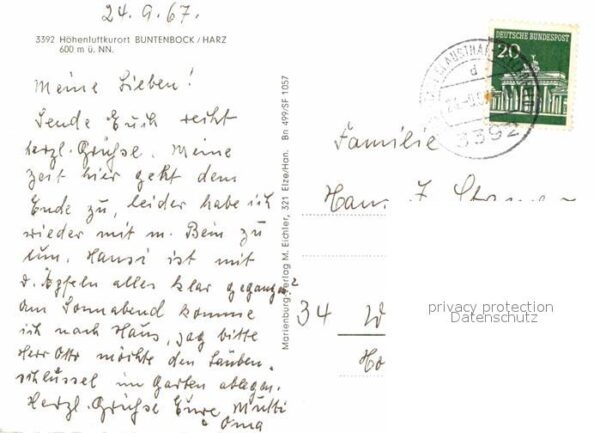 24.9.67.
3392 Höhenluftkurort BUNTENBOCK/HARZ
600 m ü. NN.
Meine Lieben!
Sende Euch recht
herzl. Grüße. Meine
Zeit hier geht dem
Ende zu, leider habe ich
wieder mit m. Bein zu
tun. Hansi ist mit
d. Äpfeln alles klar gegangen?
Am Sonnabend komme
ich nach Haus, sag bitte
Herr Otto möchte den Lauben-
schlüssel im Garten ablegen.
Herzl. Grüße Eure Mutti
+ Oma
Marienburg-Verlag M. Eichler, 321 Elze/Han. Bn 499/SF 1057
DEUTSCHE BUNDESPOST
20
CLAUSTHAL
d
3392
Familie
34 W
Ho
privacy protection
Datenschutz